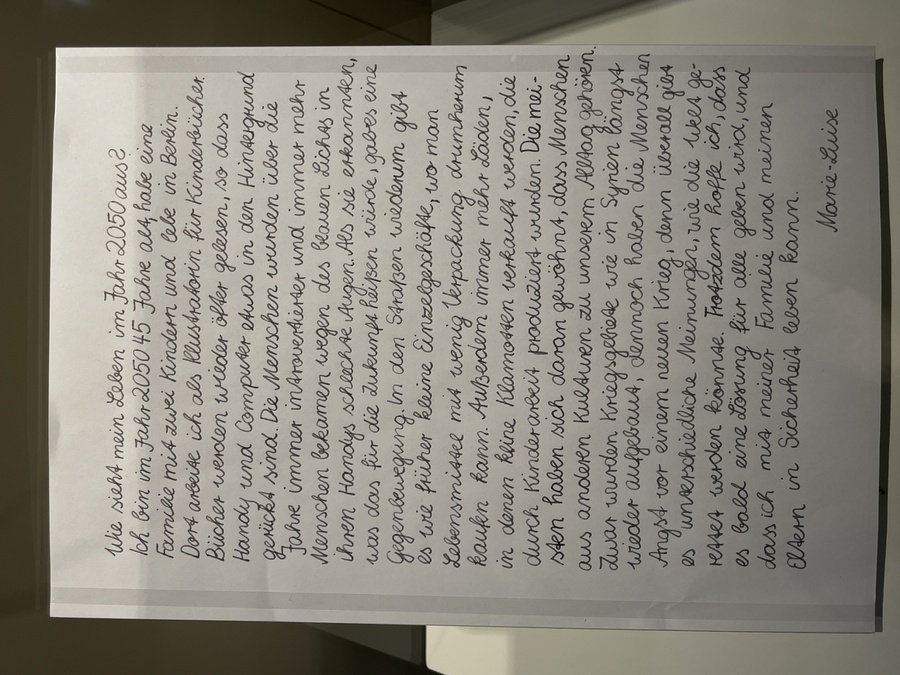 Wie sieht mein Leben im Jahr 2050 aus?
Ich bin im Jahr 2050 45 Jahre alt, habe eine
Familie mit zwei Kindern und lebe in Berlin.
Dort arbeite ich als Illustratorin für Kinderbücher.
Bücher werden wieder öfter gelesen, so dass
Handy und Computer etwas in den Hintergrund
gerückt sind. Die Menschen wurden über die
Jahre immer introvertierter und immer mehr
Menschen bekamen wegen des blauen Lichts in
ihren Handys schlechte Augen. Als sie erkannten,
was das für die Zukunft heißen würde, gab es eine
Gegenbewegung. In den Straßen wiederum gibt
es wie früher kleine Einzelgeschäfte, wo man
Lebensmittel mit wenig Verpackung drumherum
kaufen kann. Außerdem immer mehr Läden,
in denen kline Klamotten verkauft werden, die
durch Kinderarbeit produziert wurden. Die mei-
sten haben sich daran gewöhnt, dass Menschen
aus anderen Kulturen zu unserem Alltag gehören.
Zwar wurden Kriegsgebiete wie in Syrien längst
wieder aufgebaut, dennoch haben die Menschen
Angst vor einem neuen Krieg, denn überall gibt
es unterschiedliche Meinungen, wie die Welt ge-
rettet werden könnte. Trotzdem hoffe ich, dass
es bald eine Lösung für alle geben wird, und
dass ich mit meiner Familie und meinen
Eltern in Sicherheit leben kann.
Marie-Luise